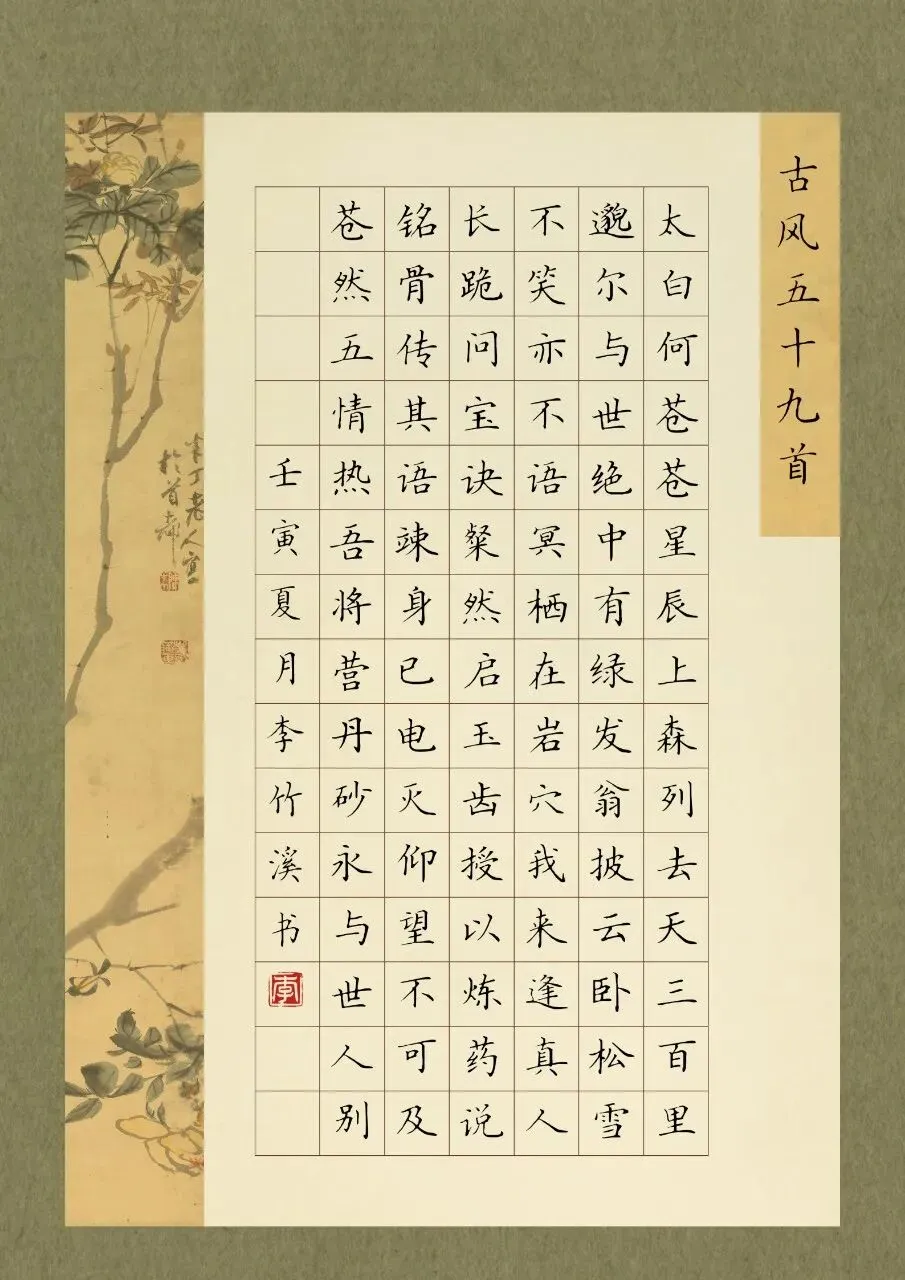 古风五十九首
太白何苍苍星辰上森列去天三百里
邈尔与世绝中有绿发翁披云卧松雪
不笑亦不语冥栖在岩穴我来逢真人
长跪问宝诀粲然启玉齿授以炼药说
铭骨传其语竦身已电灭仰望不可及
苍然五情热吾将营丹砂永与世人别
壬寅夏月李竹溪书
李